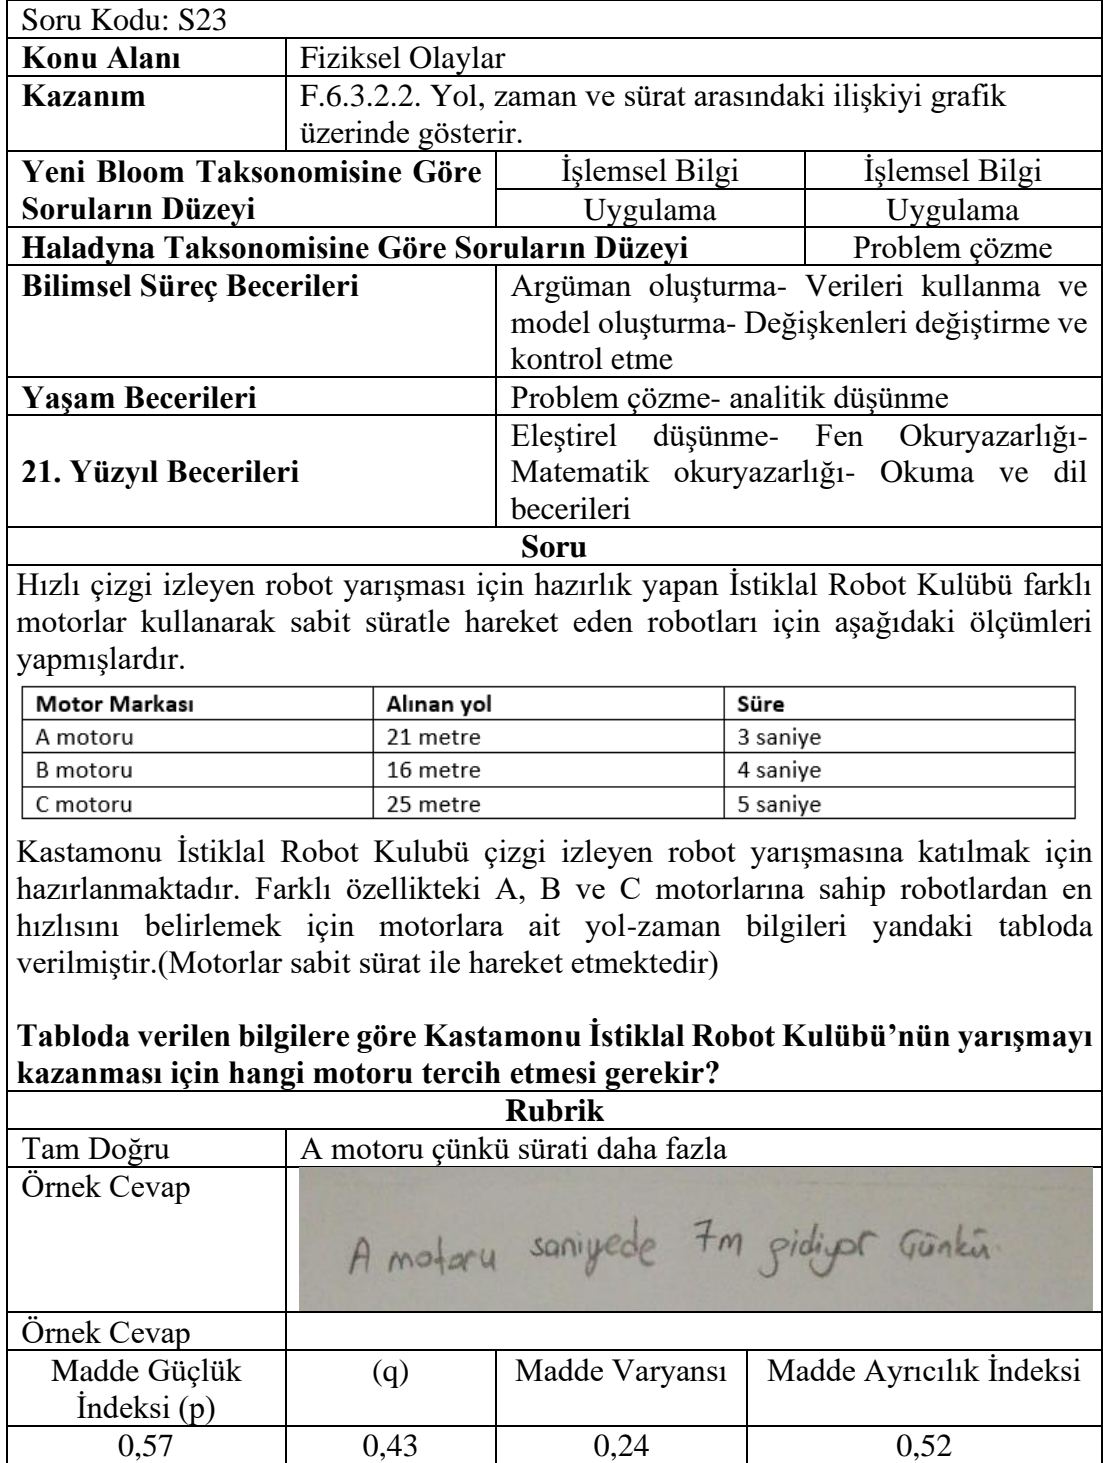 Soru Kodu: S23
Konu Alanı Fiziksel Olaylar
Kazanım F.6.3.2.2. Yol, zaman ve sürat arasındaki ilişkiyi grafik
üzerinde gösterir.
Yeni Bloom Taksonomisine Göre
Soruların Düzeyi
İşlemsel Bilgi İşlemsel Bilgi
Uygulama Uygulama
Haladyna Taksonomisine Göre Soruların Düzeyi Problem çözme
Bilimsel Süreç Becerileri Argüman oluşturma- Verileri kullanma ve
model oluşturma- Değişkenleri değiştirme ve
kontrol etme
Yaşam Becerileri Problem çözme- analitik düşünme
21. Yüzyıl Becerileri
Eleştirel düşünme- Fen Okuryazarlığı-
Matematik okuryazarlığı- Okuma ve dil
becerileri
Soru
Hızlı çizgi izleyen robot yarışması için hazırlık yapan İstiklal Robot Kulübü farklı
motorlar kullanarak sabit süratle hareket eden robotları için aşağıdaki ölçümleri
yapmışlardır.
Motor Markası Alınan yol Süre
A motoru 21 metre 3 saniye
B motoru 16 metre 4 saniye
C motoru 25 metre 5 saniye
Kastamonu İstiklal Robot Kulubü çizgi izleyen robot yarışmasına katılmak için
hazırlanmaktadır. Farklı özellikteki A, B ve C motorlarına sahip robotlardan en
hızlısını belirlemek için motorlara ait yol-zaman bilgileri yandaki tabloda
verilmiştir.(Motorlar sabit sürat ile hareket etmektedir)
Tabloda verilen bilgilere göre Kastamonu İstiklal Robot Kulübü’nün yarışmayı
kazanması için hangi motoru tercih etmesi gerekir?
Rubrik
Tam Doğru A motoru çünkü sürati daha fazla
Örnek Cevap
A motoru saniyede 7m gidiyor Çünkü.
Örnek Cevap
Madde Güçlük
İndeksi (p)
(q) Madde Varyansı Madde Ayrıcılık İndeksi
0,57 0,43 0,24 0,52